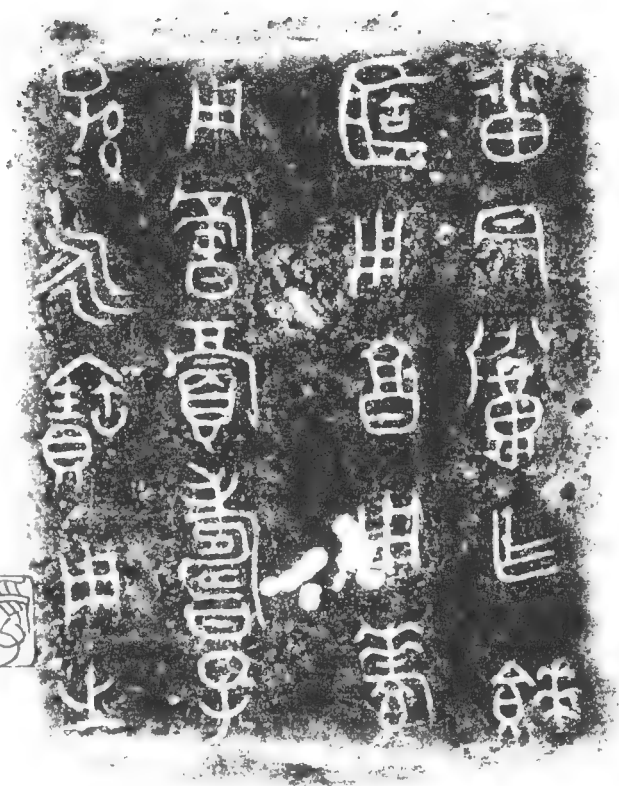 番君召乍餗
簠用亯用孝
用祈眉壽子
孫永寶用之